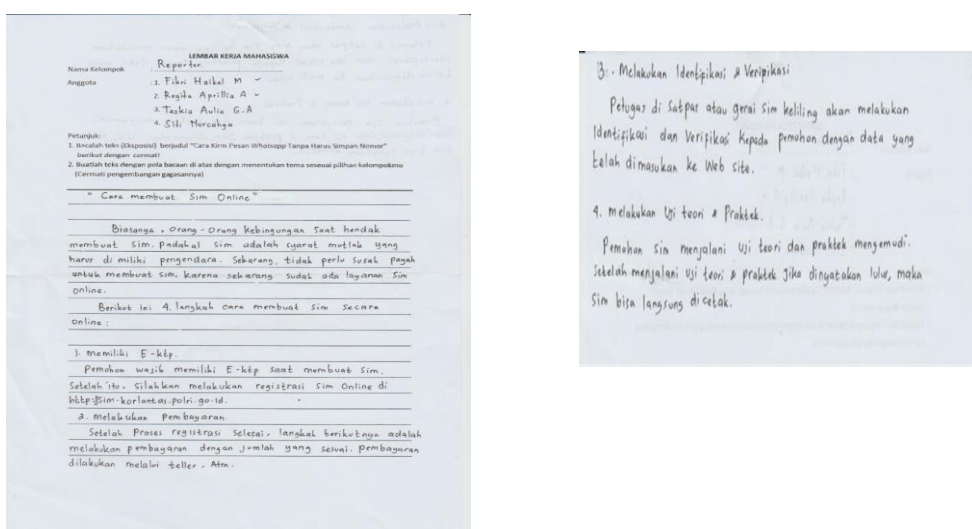 LEMBAR KERJA MAHASISWA
Nama Kelompok : Reporter
Anggota : 1. Fikri Haikal M
2. Regita Aprillia A
3. Taskia Aulia G.A
4. Siti Nurcahya
Petunjuk:
1. Bacalah teks (Eksposisi) berjudul "Cara Kirm Pesan Whatsapp Tanpa Harus Simpan Nomor"
berikut dengan cermat!
2. Buatlah teks dengan pola bacaan di atas dengan menentukan tema seseuai pilihan kelompokmu
(Cermati pengembangan gagasannya)
" Cara membuat Sim Online "
Biasanya, orang-orang kebingungan saat hendak
membuat sim. padahal sim adalah syarat mutlak yang
harus di miliki pengendara. Sekarang, tidak perlu susah payah
untuk membuat sim. karena sekarang sudah ada layanan Sim
online.
Berikut ini 4. langkah cara membuat Sim secara
online :
1. memiliki E-ktp.
Pemohon wajib memiliki E-ktp saat membuat Sim.
Setelah itu. Silahkan melakukan registrasi Sim Online di
http://sim-korlantas.polri.go.id.
2. melakukan Pembayaran.
Setelah Proses registrasi selesai, langkah berikutnya adalah
melakukan pembayaran dengan jumlah yang sesuai. pembayaran
dilakukan melalui teller, Atm.
3. Melakukan Identipikasi & Veripikasi
Petugas di satpas atau gerai sim keliling akan melakukan
Identifikasi dan Verifikasi kepada pemohon dengan data yang
telah dimasukan ke Web site.
4. melakukan Uji teori & Praktek.
Pemohon sim menjalani Uji teori dan praktek mengemudi.
Setelah menjalani uji teori & praktek jika dinyatakan lulus, maka
Sim bisa langsung dicetak.